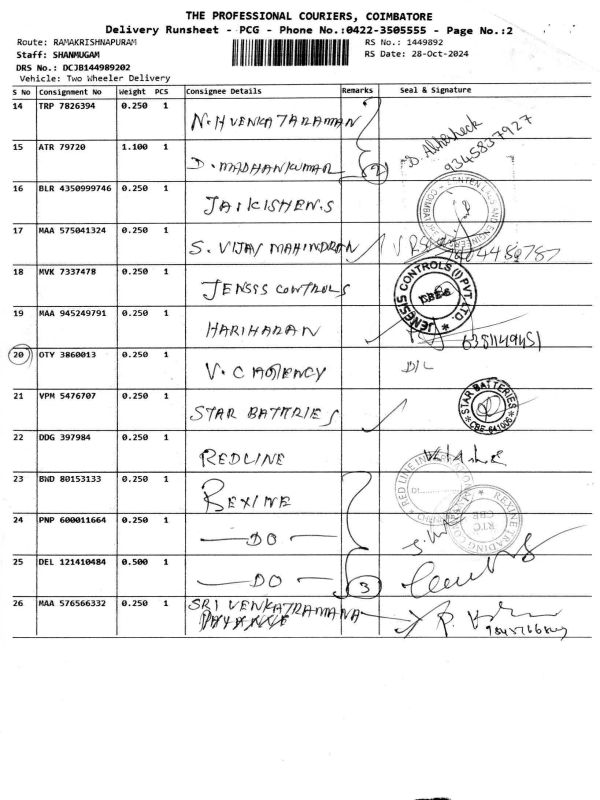 THE PROFESSIONAL COURIERS, COIMBATORE
Delivery Runsheet - PCG - Phone No.:0422-3505555 - Page No.:2
Route: RAMAKRISHNAPURAM RS No.: 1449892
Staff: SHANMUGAM RS Date: 28-Oct-2024
DRS No.: DCJB144989202
Vehicle: Two Wheeler Delivery
S No Consignment No Weight PCS Consignee Details Remarks Seal & Signature
14 TRP 7826394 0.250 1 N.H VENKATARAMAN
D. Abhisheck
9345837927
15 ATR 79720 1.100 1 D. MADHANKUMAR 2
16 BLR 4350999746 0.250 1 JAIKISHEN.S
17 MAA 575041324 0.250 1 S. VIJAY MAHINDRAN
18 MVK 7337478 0.250 1 JENSIS CONTROLS
JENESIS CONTROLS (I) PVT. LTD.
CBE-6
19 MAA 945249791 0.250 1 HARIHARAN
20 OTY 3860013 0.250 1 V.C AGENCY D/L
21 VPM 5476707 0.250 1 STAR BATTRIES
STAR BATTERIES
CBE-641006
22 DDG 397984 0.250 1 REDLINE
RED LINE
23 BWD 80153133 0.250 1 REXINE
REXINE TRADING CO
RTC
CBE
24 PNP 600011664 0.250 1 DO
25 DEL 121410484 0.500 1 DO 3
26 MAA 576566332 0.250 1 SRI VENKATRAMANA